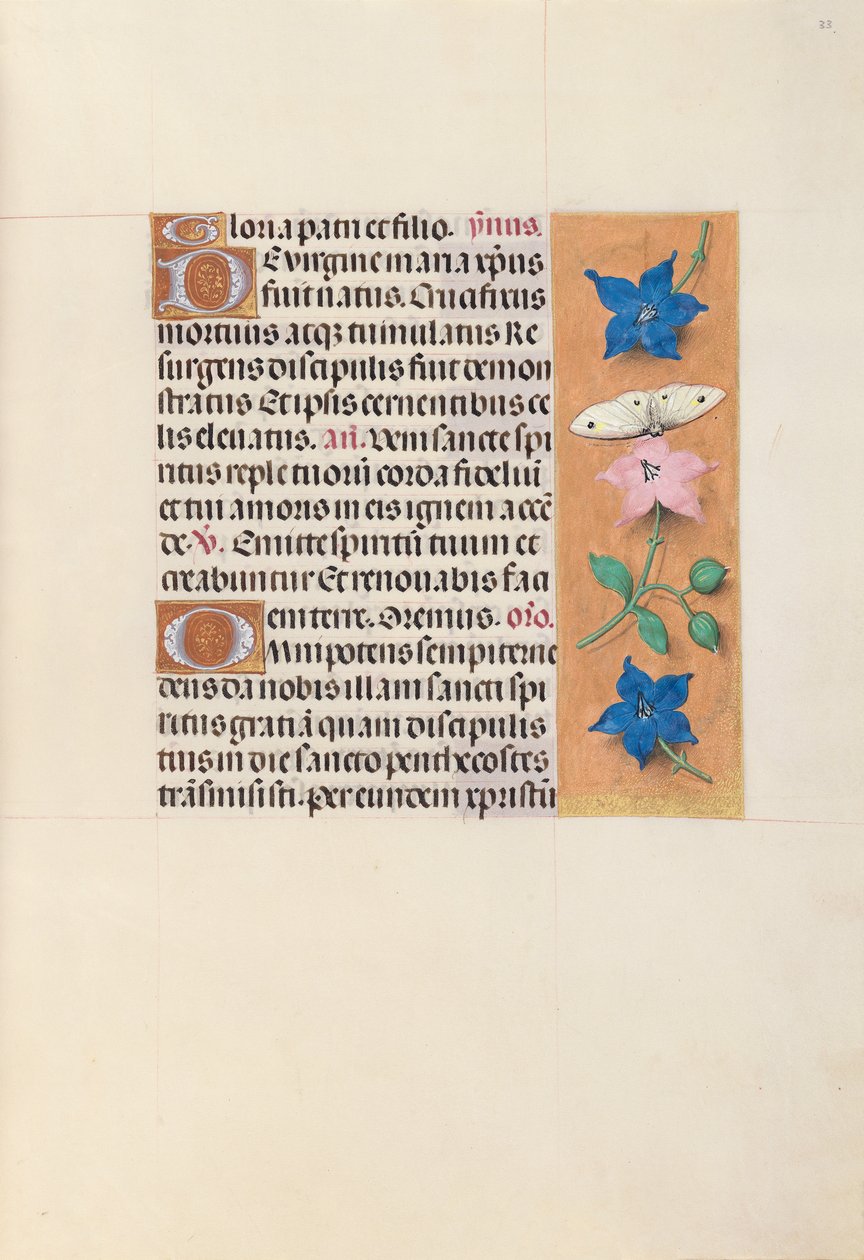 33
Gloria patri et filio. ỹmus.
De virgine maria xp̃us
fuit natus. Crucifixus
mortuus atq3 tumulatus Re
surgens discipulis fuit demon
stratus Et ipsis cernentibus ce
lis elevatus. añ. Veni sancte spi
ritus reple tuorũ corda fideliũ
et tui amoris in eis ignem accẽ
de. V̓. Emitte spiritũ tuum et
creabuntur Et renovabis faci
em terre. Oremus. or̃o.
Omnipotens sempiterne
deus da nobis illam sancti spi
ritus gratiã quam discipulis
tuis in die sancto penthecostes
trãsmisisti. per eundem xpristũ